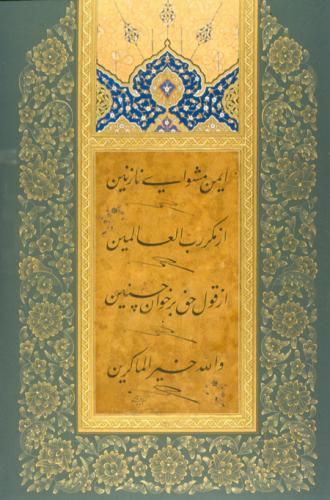 ایمن مشو ای نازنین
از مکر رب العالمین
از قول حق برخوان چنین
والله خیر الماکرین